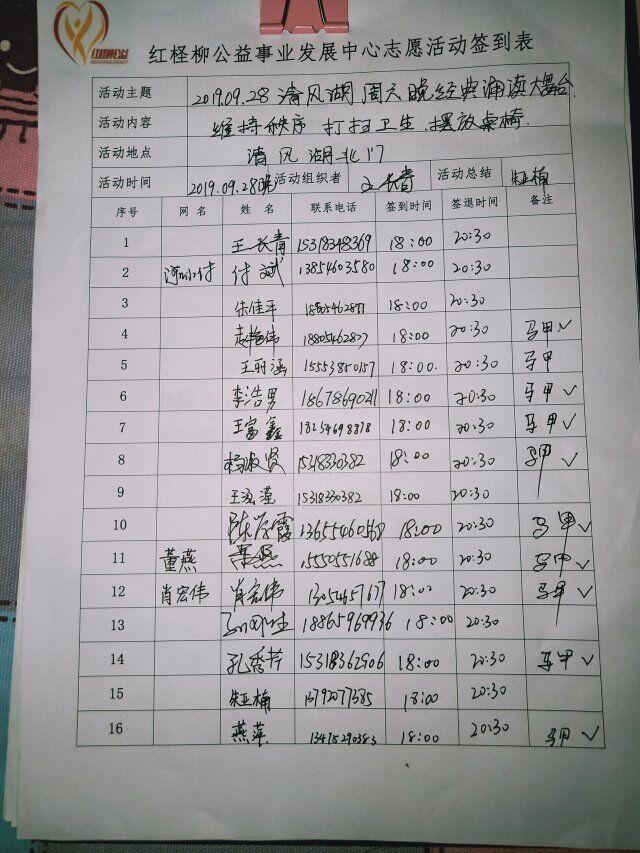 红柽柳公益事业发展中心志愿活动签到表
活动主题 2019.09.28 清风湖周六晚经典诵读大舞台.
活动内容 维持秩序 打扫卫生 摆放桌椅.
活动地点 清风湖北门
活动时间 2019.09.28晚 活动组织者 王长青 活动总结 朱亚楠
序号 网名 姓名 联系电话 签到时间 签退时间 备注
1 王长青 15318348369 18:00 20:30
2 付斌 13854603580 18:00 20:30
3 朱佳平 18:00 20:30
4 赵艳伟 18805462827 18:00 20:30 马甲 ✓
5 王雨涵 15553850157 18:00. 20:30 马甲
6 李浩男 18678690211 18:00 20:30 马甲 ✓
7 王富鑫 18254698818 18:00 20:30 马甲 ✓
8 杨淑贤 15318330382 18:00 20:30 马甲 ✓
9 15318330382 18:00 20:30
10 13655460568 18:00 20:30 马甲 ✓
11 董燕 董燕 15550551688 18:00 20:30 马甲 ✓
12 肖宏伟 肖宏伟 13054657677 18:00 20:30 马甲 ✓
13 18865969936 18:00 20:30
14 孔秀芹 15318362906 18:00 20:30 马甲 ✓
15 朱亚楠 13792077385 18:00 20:30
16 燕萍 13475290383 18:00 20:30 马甲 ✓